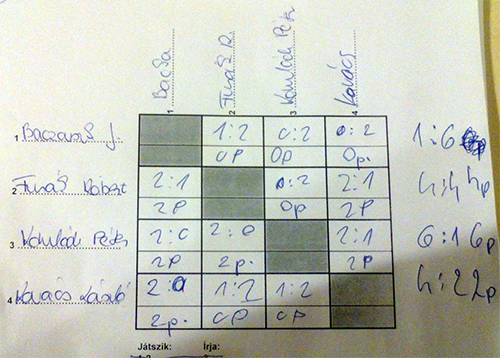 1 Bacsa
2 Furáš R.
3 Péter
4 Kovács
1 J. 1:2 0:2 0:2 1:6
0P 0p 0p.
2 Furáš Róbert 2:1 0:2 2:1 4:4 4p
2P 0p 2P
3 Péter 2:0 2:0 2:1 6:1 6p
2P 2p. 2P
4 Kovács László 2:0 1:2 1:2 4:2 2p
2p. 0P 0P
Játszik: Írja: